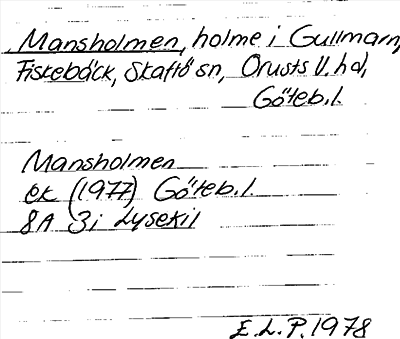 Mansholmen, holme i Gullmarn,
Fiskebäck, Skaftö sn, Orusts V. hd,
Göteb. l.
Mansholmen
ek (1977) Göteb. l.
8A 3i Lysekil
E. L. P. 1978